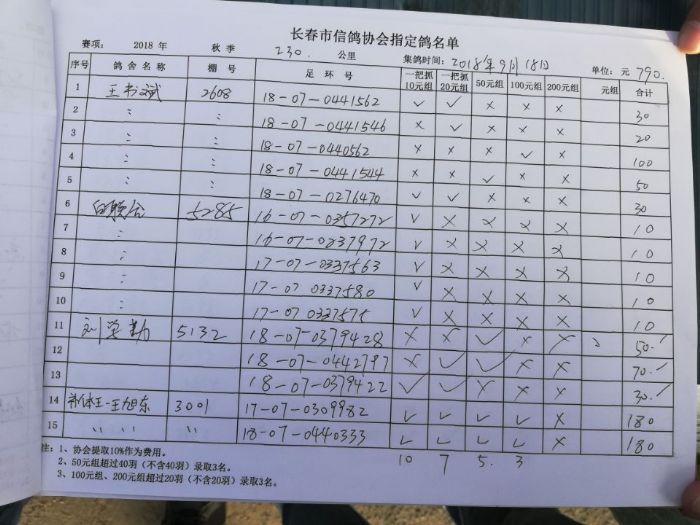 长春市信鸽协会指定鸽名单
赛项: 2018 年 秋 季 230. 公里 集鸽时间: 2018年9月18日 单位: 元 790.
序号 鸽舍名称 棚号 足环号 一把抓10元组 一把抓20元组 50元组 100元组 200元组 元组 合计
1 王书斌 2608 18-07-0441562 ✓ ✓ × × × 30
2 〃 〃 18-07-0441546 × ✓ × × × 20
3 〃 〃 18-07-0440562 × × × ✓ × 100
4 〃 〃 18-07-0441544 × × ✓ × × 50
5 〃 〃 18-07-0276470 ✓ ✓ × × × 30
6 5285 16-07-0357272 ✓ × × × × 10
7 〃 16-07-0237972 ✓ × × × × 10
8 〃 17-07-0337563 ✓ × × × × 10
9 〃 17-07-0337580 ✓ × × × × 10
10 〃 17-07 0337575 ✓ × × × × 10
11 刘学勤 5132 18-07-0379428 × × ✓ × × 50.
12 18-07-0442797 × ✓ ✓ × × 70.
13 18-07-0379422 ✓ ✓ × × × 30.
14 王旭东 3001 17-07-0309982 ✓ ✓ ✓ ✓ × 180
15 〃 〃 〃 18-07-0440333 ✓ ✓ ✓ ✓ × 180
10 7 5. 3
注: 1、协会提取10%作为费用。
2、50元组超过40羽(不含40羽)录取3名。
3、100元组、200元组超过20羽(不含20羽)录取3名。